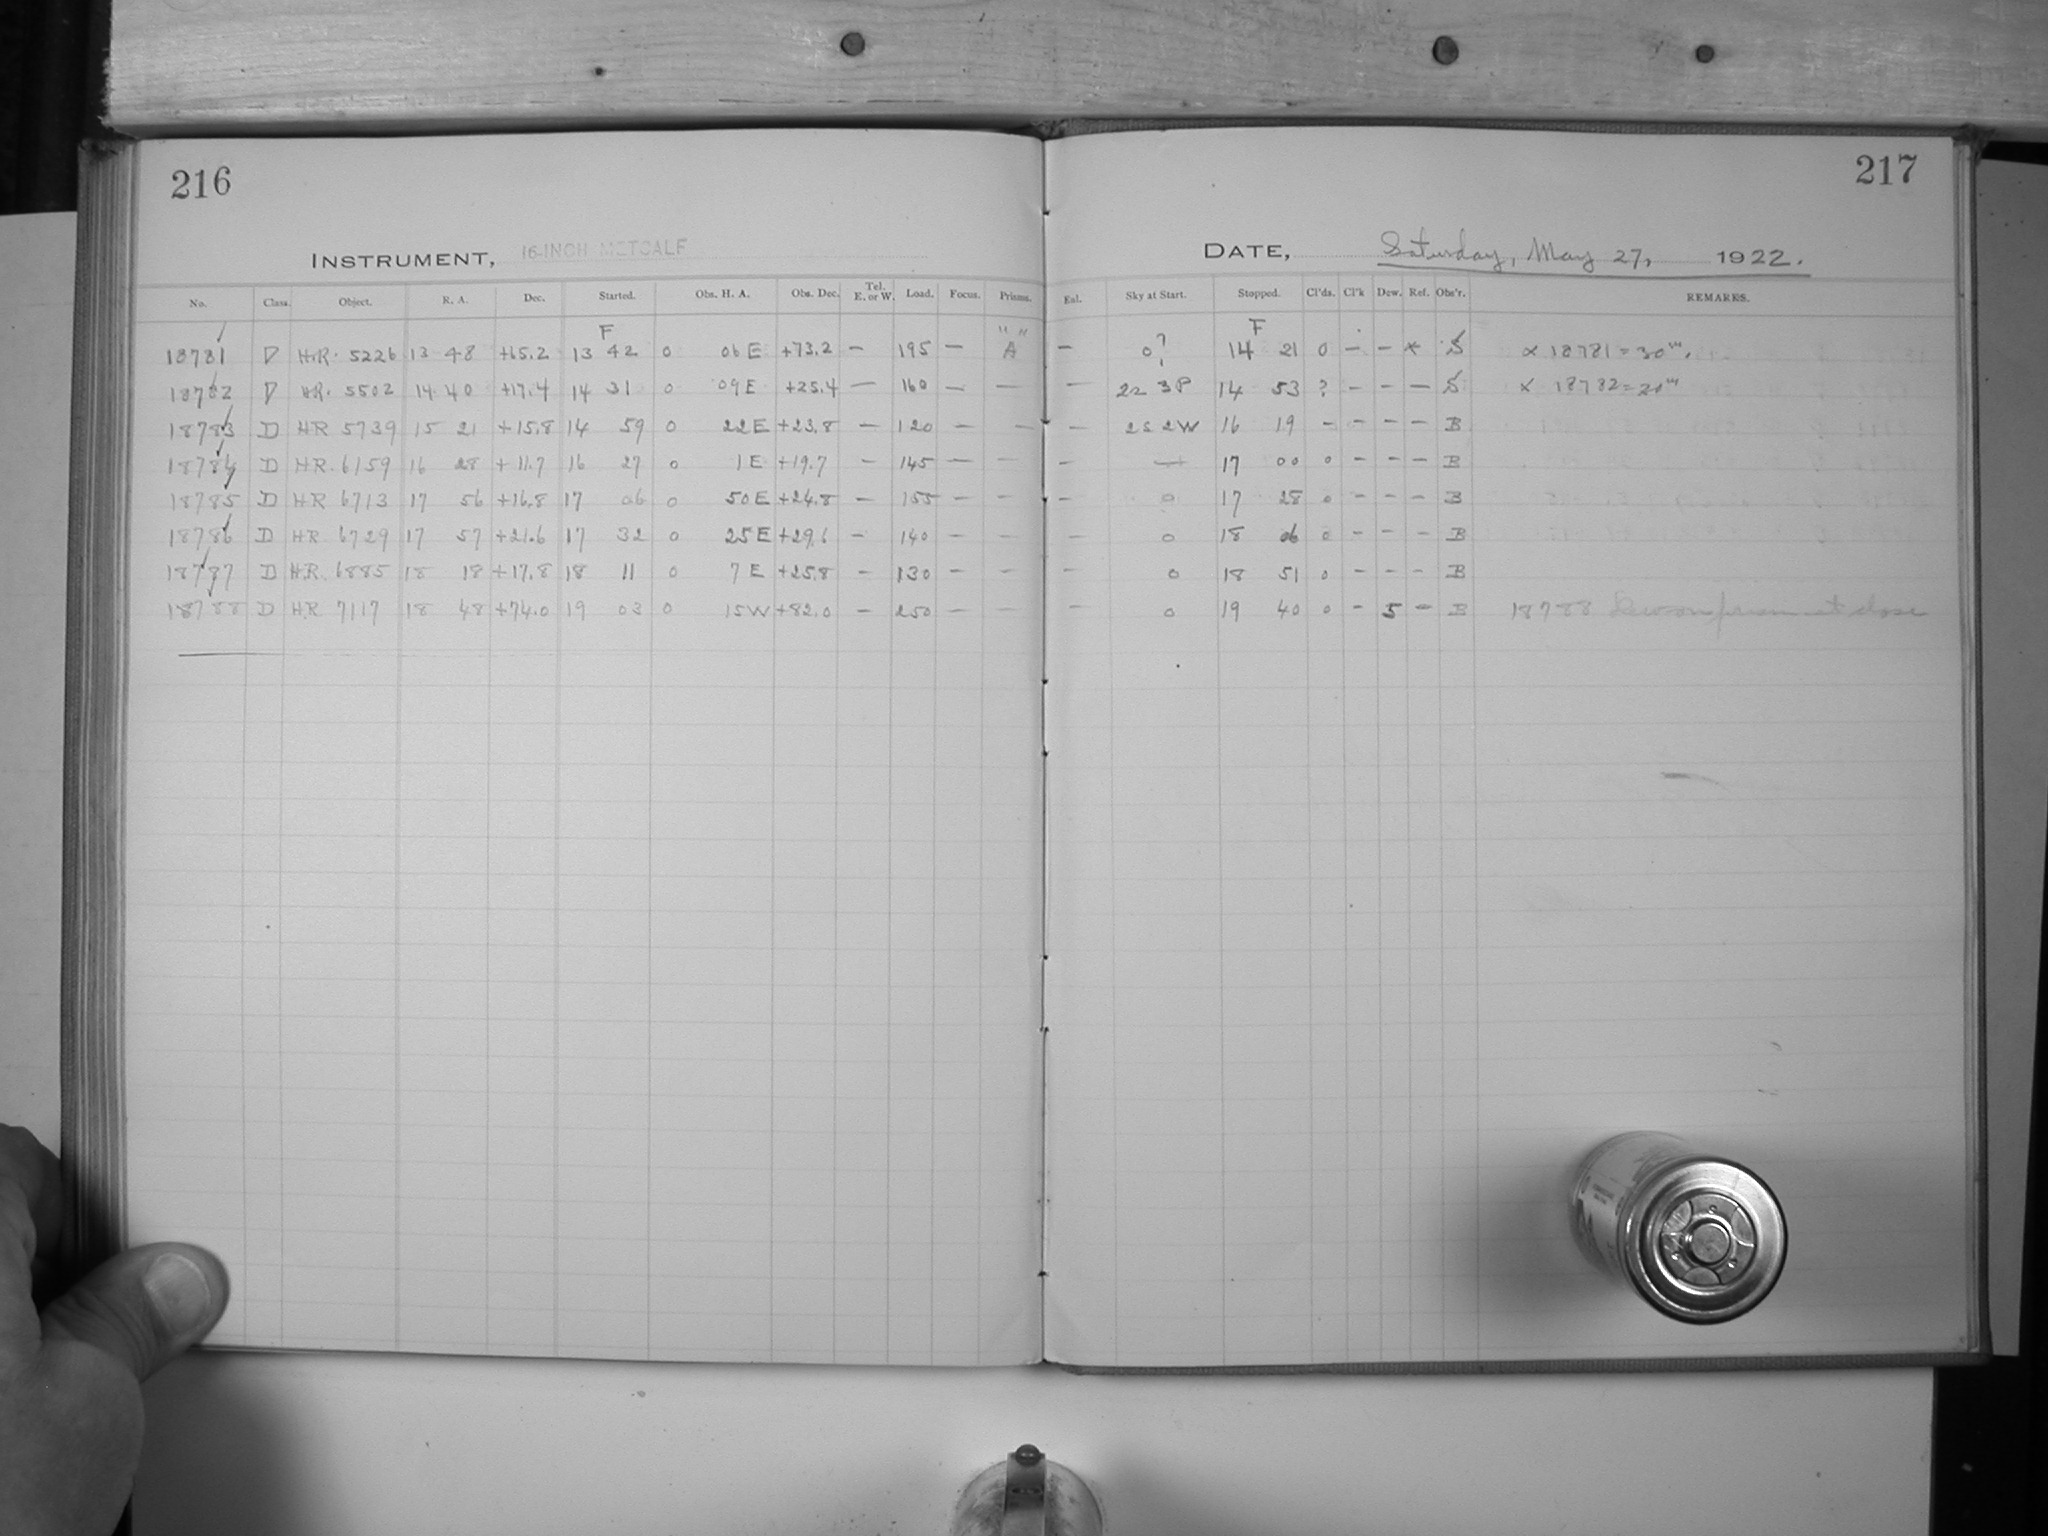 216
217
INSTRUMENT, 16-INCH METCALF
DATE, Saturday, May 27, 1922.
No. Class. Object. R. A. Dec. Started. Obs. H. A. Obs. Dec. Tel. E. or W. Load. Focus. Prisms. Enl. Sky at Start. Stopped. Cl'ds. Cl'k Dew. Ref. Obs'r. REMARKS.
F " " F
18781 D H.R. 5226 13 48 +65.2 13 42 0 06 E +73.2 — 195 — A — 0? 14 21 0 — — * S α 18781 = 30m.
18782 D HR. 5502 14 40 +17.4 14 31 0 09 E +25.4 — 160 — — — 22 3P 14 53 ? — — — S α 18782 = 20m
18783 D HR 5739 15 21 +15.8 14 59 0 22 E +23.8 — 120 — — — 2S 2W 16 19 — — — — B
18784 D HR. 6159 16 28 +11.7 16 27 0 1 E +19.7 — 145 — — — — 17 00 0 — — — B
18785 D HR 6713 17 56 +16.8 17 06 0 50 E +24.8 — 155 — — — 0 17 28 0 — — — B
18786 D HR. 6729 17 57 +21.6 17 32 0 25 E +29.6 — 140 — — — 0 18 06 0 — — — B
18787 D H.R. 6885 18 18 +17.8 18 11 0 7 E +25.8 — 130 — — — 0 18 51 0 — — — B
18788 D H.R. 7117 18 48 +74.0 19 03 0 15 W +82.0 — 250 — — — 0 19 40 0 — 5 — B 18788 Dew on prism at close